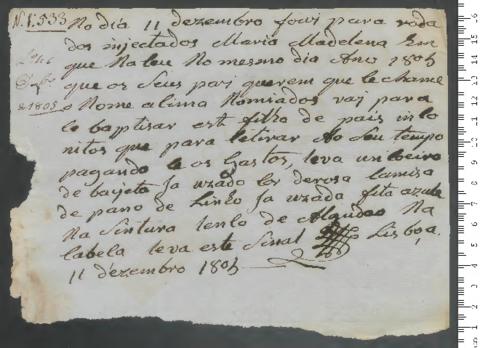 N. 1:533
No dia 11 dezembro foi para roda
dos injectados Maria Madelena Em
que Naceu No mesmo dia Ano 1805
que os Seus pais querem que le chame
o Nome acima Nomiados vai para
ce baptisar esta filha de pais inco
nitos que para retirar Ao Seu tempo
pagando le os Gastos, leva un coeiro
de baijeta Ja uzado cor derosa camisa
de pano de Linho Ja uzada fita azule
Na Sintura lenco de Algudão Na
cabeca leva este Sinal Lisboa,
11 dezembro 1805